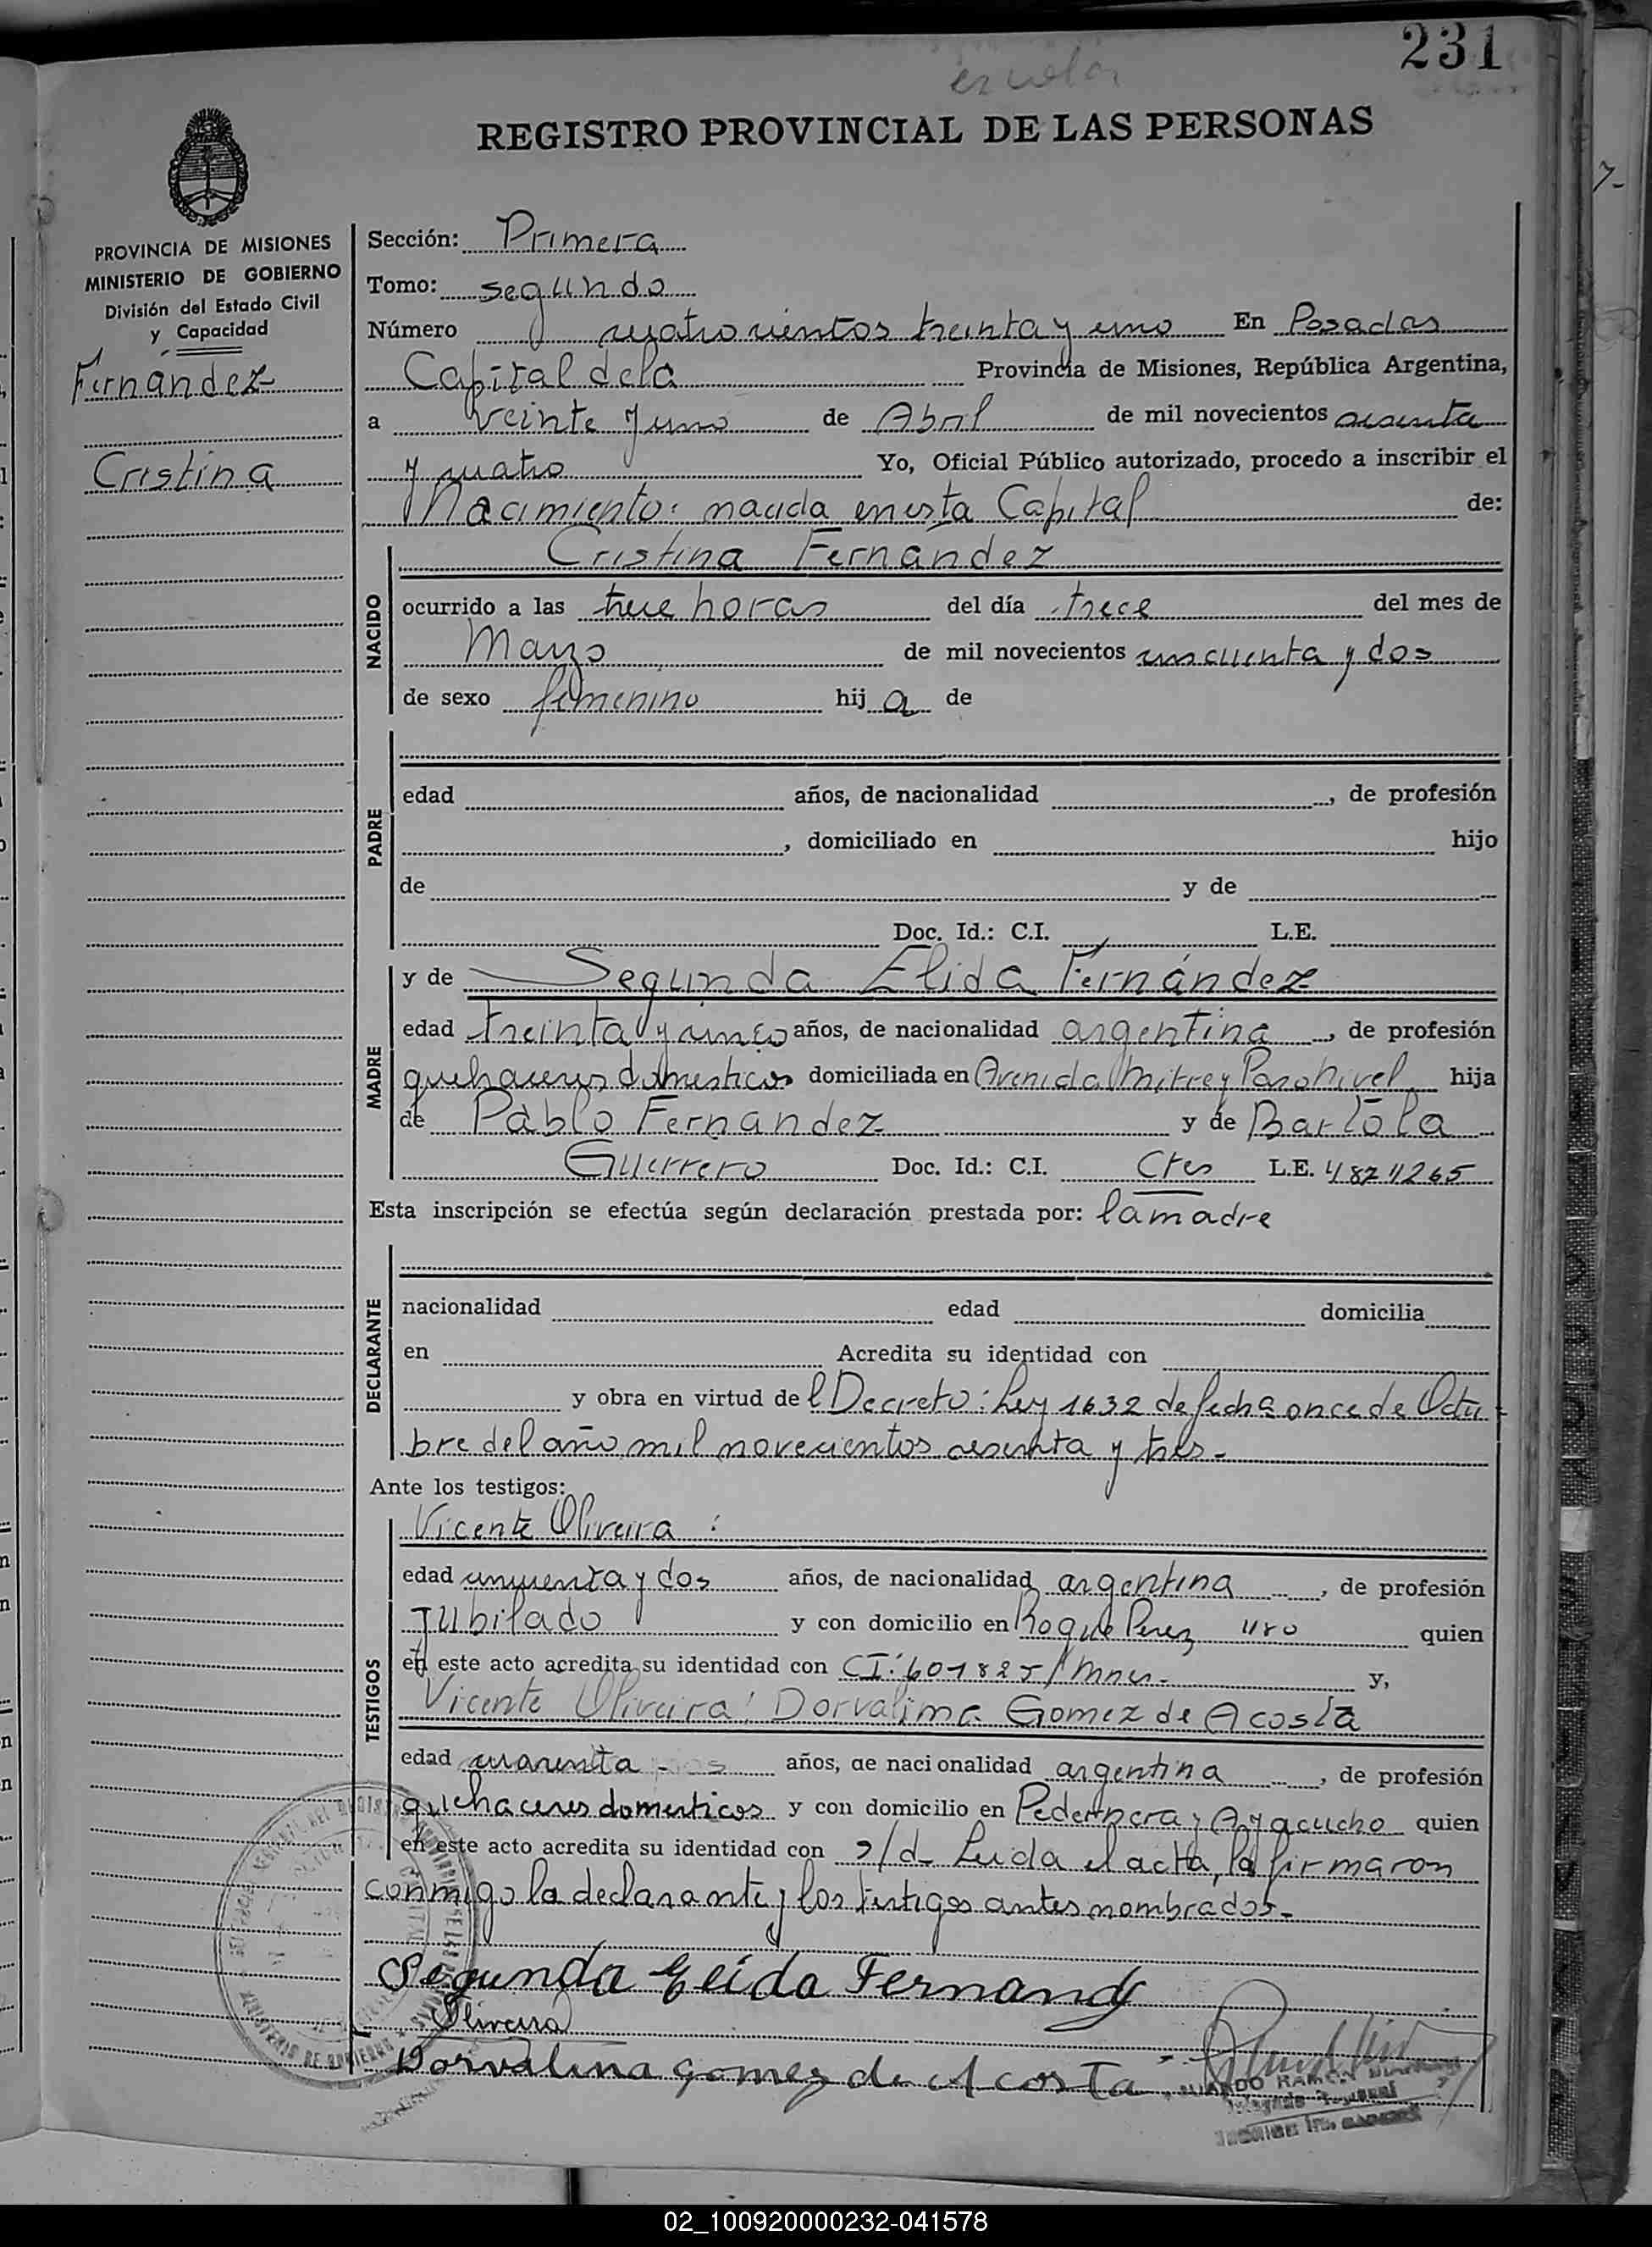 231
escolar
REGISTRO PROVINCIAL DE LAS PERSONAS
PROVINCIA DE MISIONES
MINISTERIO DE GOBIERNO
División del Estado Civil
y Capacidad
Fernández
Cristina
Sección: Primera
Tomo: segundo
Número cuatrocientos treinta y uno En Posadas
Capital dela Provincia de Misiones, República Argentina,
a veinte y uno de Abril de mil novecientos sesenta
y cuatro Yo, Oficial Público autorizado, procedo a inscribir el
Nacimiento: nacida en esta Capital de:
NACIDO
Cristina Fernández
ocurrido a las trece horas del día trece del mes de
Marzo de mil novecientos cincuenta y dos
de sexo femenino hij a de
PADRE
edad años, de nacionalidad , de profesión
, domiciliado en hijo
de y de
Doc. Id.: C.I. L.E.
MADRE
y de Segunda Elida Fernández
edad treinta y cinco años, de nacionalidad argentina , de profesión
quehaceres domesticos domiciliada en Avenida Mitre y Paso Nivel hija
de Pablo Fernandez y de Bartola
Guerrero Doc. Id.: C.I. Ctes L.E. 4871265
Esta inscripción se efectúa según declaración prestada por: la madre
DECLARANTE
nacionalidad edad domicilia
en Acredita su identidad con
y obra en virtud de l Decreto: Ley 1632 de fecha once de Octu
bre del año mil novecientos sesenta y tres.
Ante los testigos:
TESTIGOS
Vicente Oliveira :
edad cincuenta y dos años, de nacionalidad argentina , de profesión
Jubilado y con domicilio en Roque Perez quien
en este acto acredita su identidad con CI: 601825/Mnes. y,
Vicente Oliveira: Dorvalima Gomez de Acosta
edad cuarenta años, de nacionalidad argentina , de profesión
quehaceres domesticos y con domicilio en Pedernera y Ayacucho quien
en este acto acredita su identidad con s/d. Leida el acta, la firmaron
conmigo la declarante y los testigos antes nombrados.
Segunda Elida Fernandz
Oliveira
Dorvalina gomez de Acosta
RAMON
02_100920000232-041578